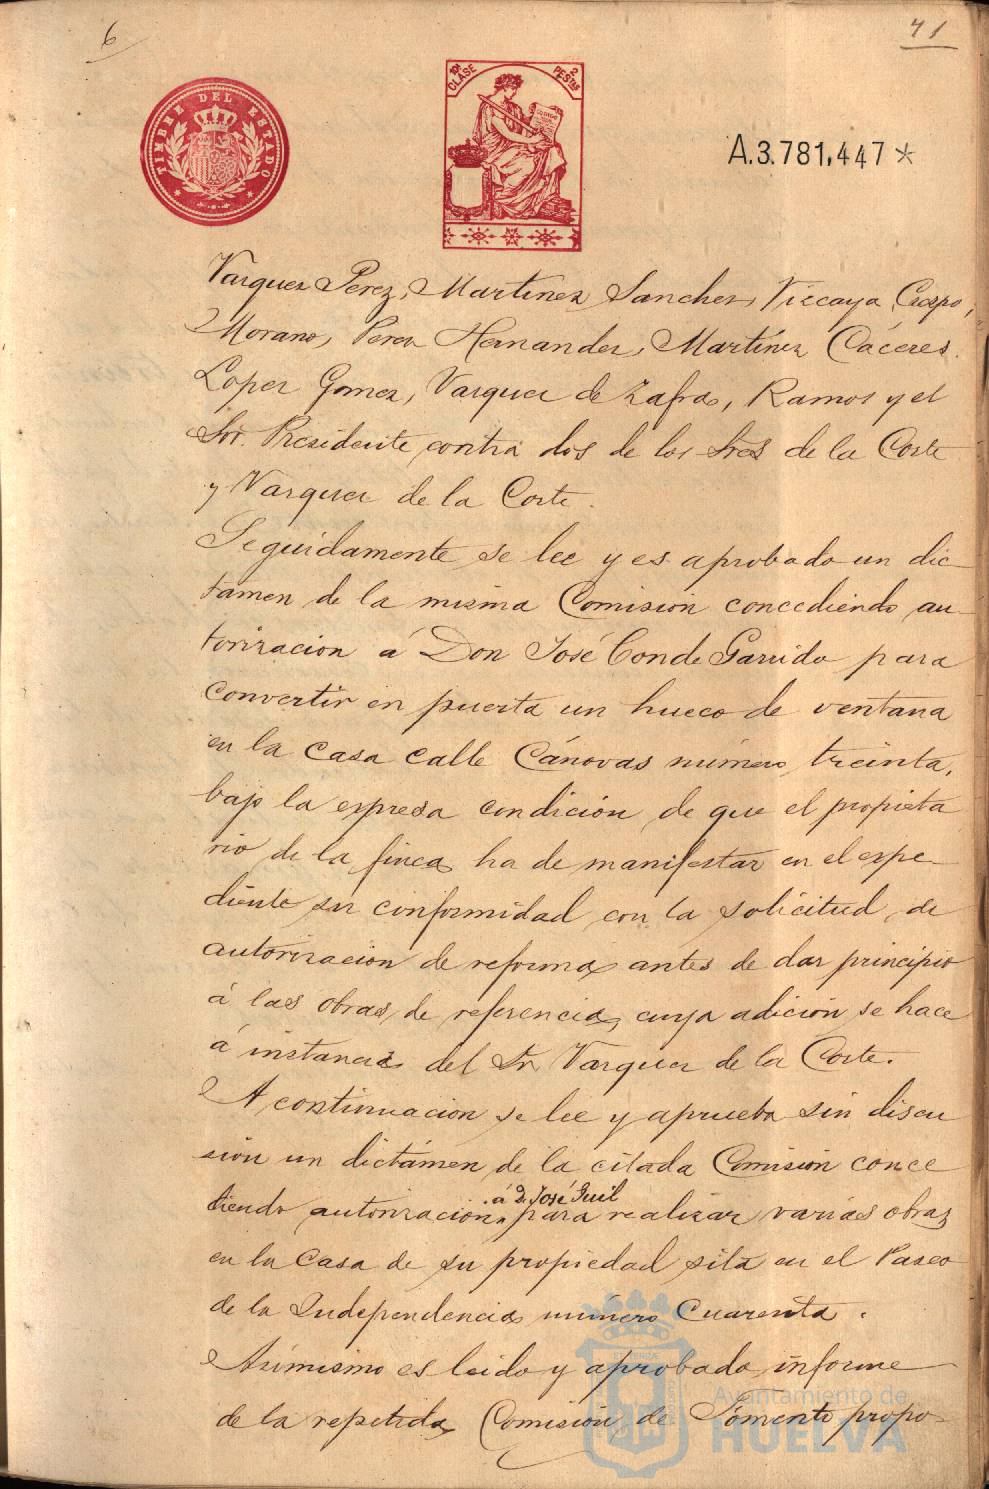 6
41
TIMBRE DEL ESTADO
10ª CLASE
2 PESTAS
A.3.781,447*
Vazquez Perez, Martinez Sanchez, Viccaya, Crespo,
Morano, Perez Hernandez, Martínez Cáceres.
Lopez Gomez, Vazquez de Zafra, Ramos y el
Sor. Presidente contra dos de los Sres de la Corte
y Vazquez de la Corte.
Seguidamente se lee y es aprobado un dic-
tamen de la misma Comisión concediendo au-
torizacion á Don José Conde Garrido para
convertir en puerta un hueco de ventana
en la casa calle Cánovas número treinta,
bajo la espresa condición de que el propieta
rio de la finca ha de manifestar en el espe-
diente su conformidad con la solicitud de
autorizacion de reforma antes de dar principio
á las obras de referencia, cuya adición se hace
á instancia del Sr Vazquez de la Corte.
A continuacion se lee y aprueba sin discu
sión un dictámen de la citada Comisión conce
diendo autorizacion á D. José Guil para realizar varias obras
en la casa de su propiedad sita en el Paseo
de la Independencia número cuarenta.
Asimismo es leido y aprobado informe
de la repetida Comisión de Fómento propo-
Ayuntamiento de
HUELVA